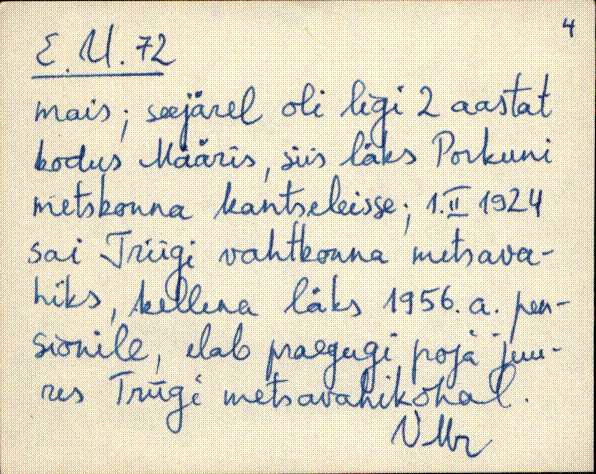 4
E.Ü.72
mais; seejärel oli ligi 2 aastat
kodus Määris, siis läks Porkuni
metskonna kantseleisse; 1.II 1924
sai Triigi vahtkonna metsava-
hiks, kellena läks 1956.a. pen-
sionile, elab praegugi poja juu-
res Triigi metsavahikohal.